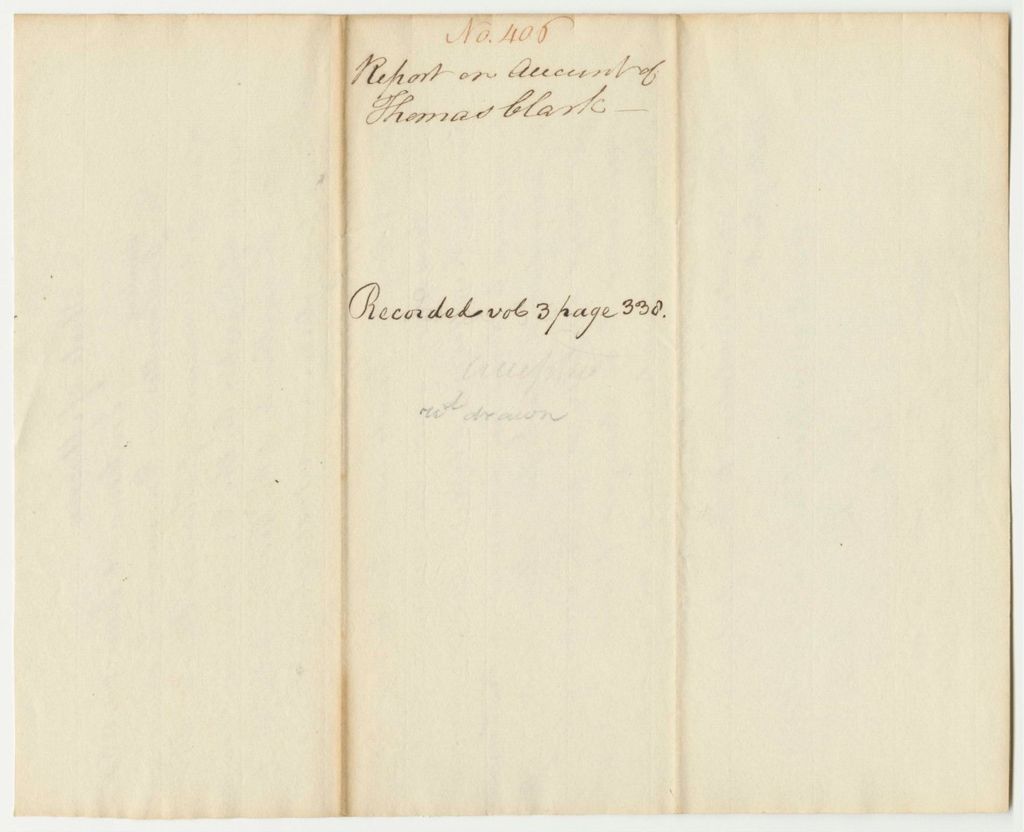 No. 406
Report on Account of
Thomas Clark —
Recorded vol 3 page 338.
drawn